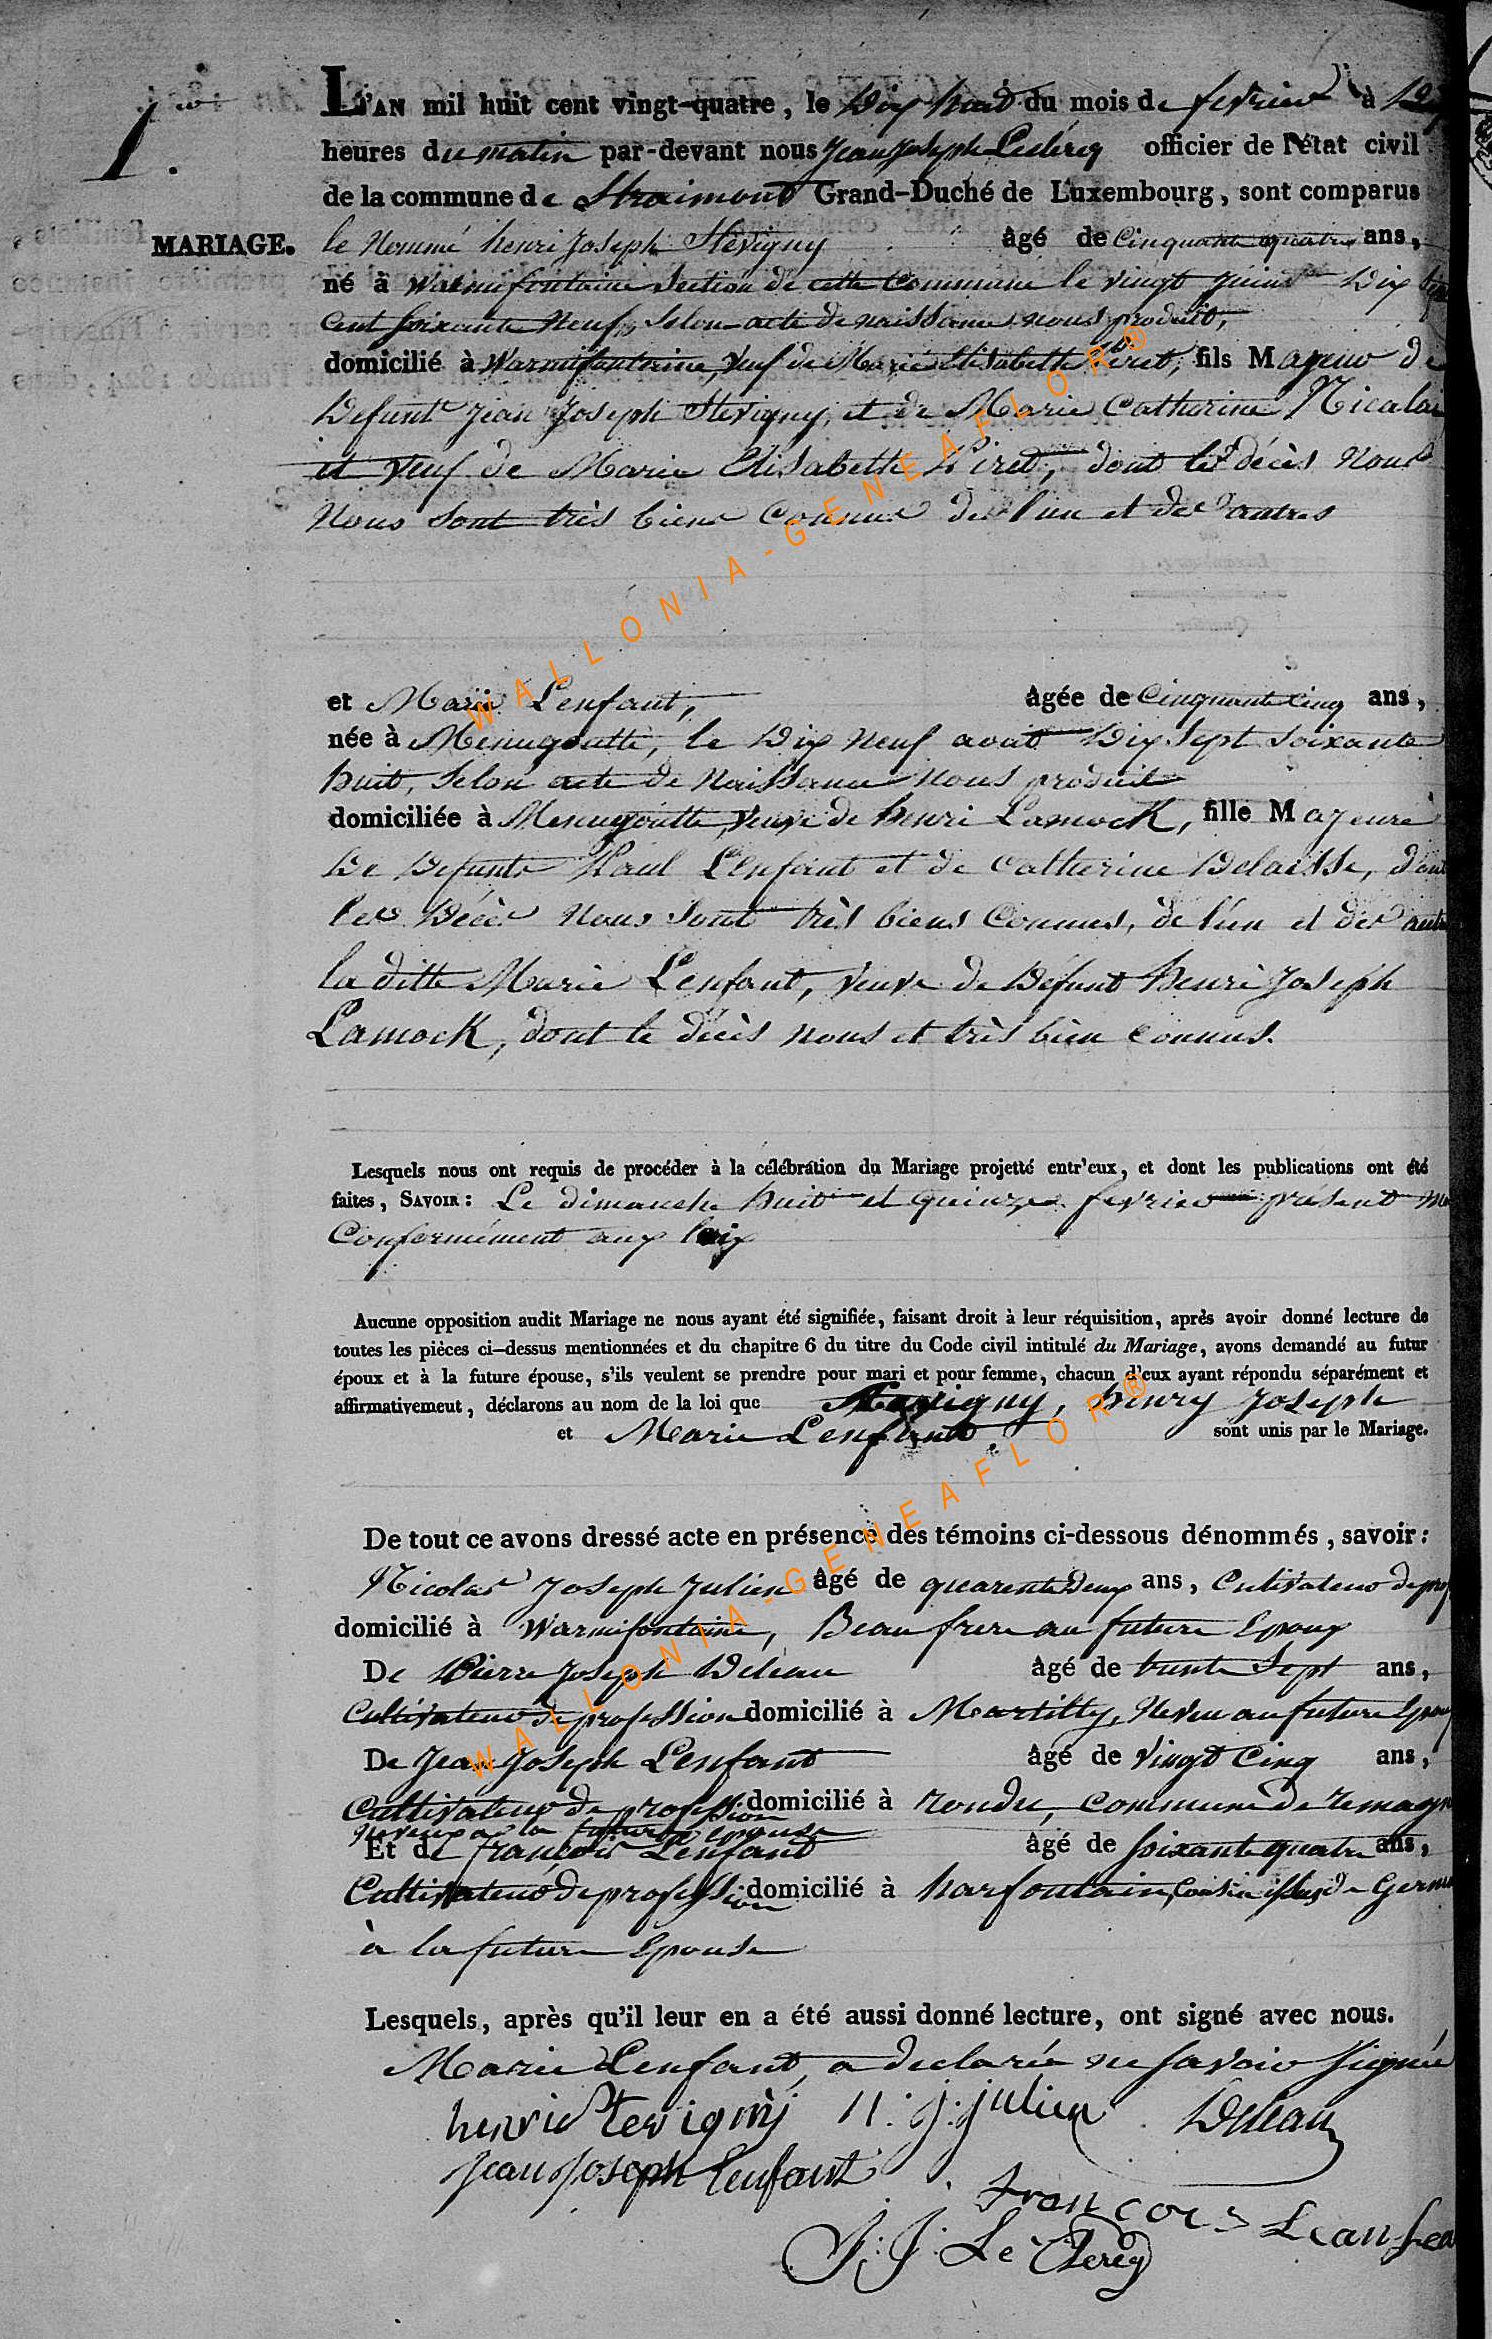 1.
MARIAGE.
L'AN mil huit cent vingt-quatre, le Dix huit du mois de fevrier à
heures du matin par-devant nous Jean Joseph Leclercq officier de l'état civil
de la commune de Straimont Grand-Duché de Luxembourg, sont comparus
le Nommé henri Joseph Stevigny âgé de Cinquante quatre ans,
né à Warmifontaine Section de cette Commune le vingt Dix
Cent soixante Neuf, Selon acte de naissance nous produit,
domicilié à Warmifontaine, Veuf de Marie Elisabette Piret, fils Majeur de
Defunt Jean Joseph Stevigny, et de Marie Catherine Nicolai
et Veuf de Marie Elisabette Piret, dont les décès Nous
Nous sont très biens Connus de l'un et des autres
et Marie Lenfant, âgée de Cinquante Cinq ans,
née à Menugoutte, le Dix Neuf avait Dix Sept Soixante
huit, Selon acte de Naissance Nous produit
domiciliée à Menugoutte, Veuve de henri Lamock, fille Majeure
De Defunts Paul Lenfant et de Catherine Delaisse, dont
les Décès Nous Sont très biens Connus, de l'un et des autre
la ditte Marie Lenfant, Veuve de Défunt henri Joseph
Lamock, dont le décès nous et très bien connus.
Lesquels nous ont requis de procéder à la célébration du Mariage projetté entr'eux, et dont les publications ont été
faites, SAVOIR : Le dimanche huit et quinze fevrier présent
Conformément aux loix
Aucune opposition audit Mariage ne nous ayant été signifiée, faisant droit à leur réquisition, après avoir donné lecture de
toutes les pièces ci-dessus mentionnées et du chapitre 6 du titre du Code civil intitulé du Mariage, avons demandé au futur
époux et à la future épouse, s'ils veulent se prendre pour mari et pour femme, chacun d'eux ayant répondu séparément et
affirmativement, déclarons au nom de la loi que Stevigny, henry Joseph
et Marie Lenfant sont unis par le Mariage.
De tout ce avons dressé acte en présence des témoins ci-dessous dénommés, savoir :
Nicolas Joseph Julien âgé de quarente deux ans, Cultivateur de prof
domicilié à Warmifontaine, Beau frere au future Epoux
De Pierre Joseph Deleau âgé de trente Sept ans,
Cultivateur de profession domicilié à Martilly, Neveu au future Epoux
De Jean Joseph Lenfant âgé de Vingt Cinq ans,
Cultivateur de profession domicilié à rondu, commune de remagn
Neveux a la future epouse
Et de françois Lenfant âgé de soixante quatre ans,
Cultivateur de profession domicilié à harfontaine, Cousin issus de Germ
à la future Epouse
Lesquels, après qu'il leur en a été aussi donné lecture, ont signé avec nous.
Marie Lenfant, a declarée ne savoir signée
henri Stevigny N. j. julien Deleau
Jean Joseph lenfant
francois
J. J. Le Clercq
WALLONIA-GENEAFLOR®
WALLONIA-GENEAFLOR®